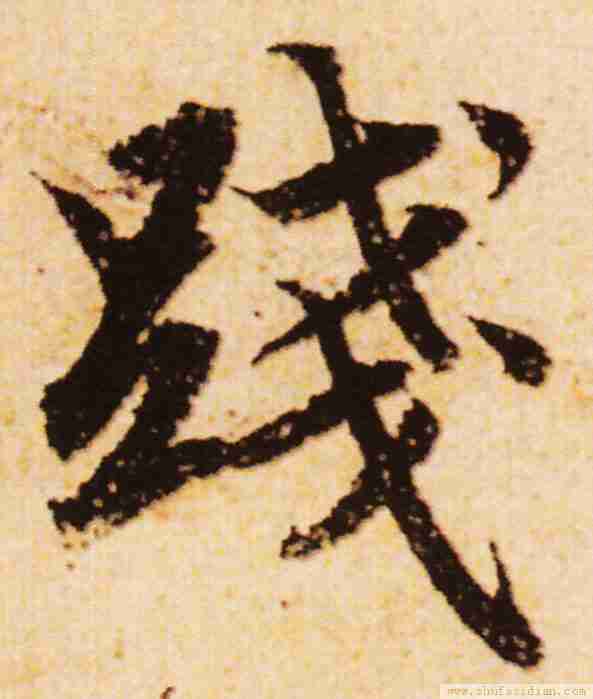 踐
www.shufazidian.com